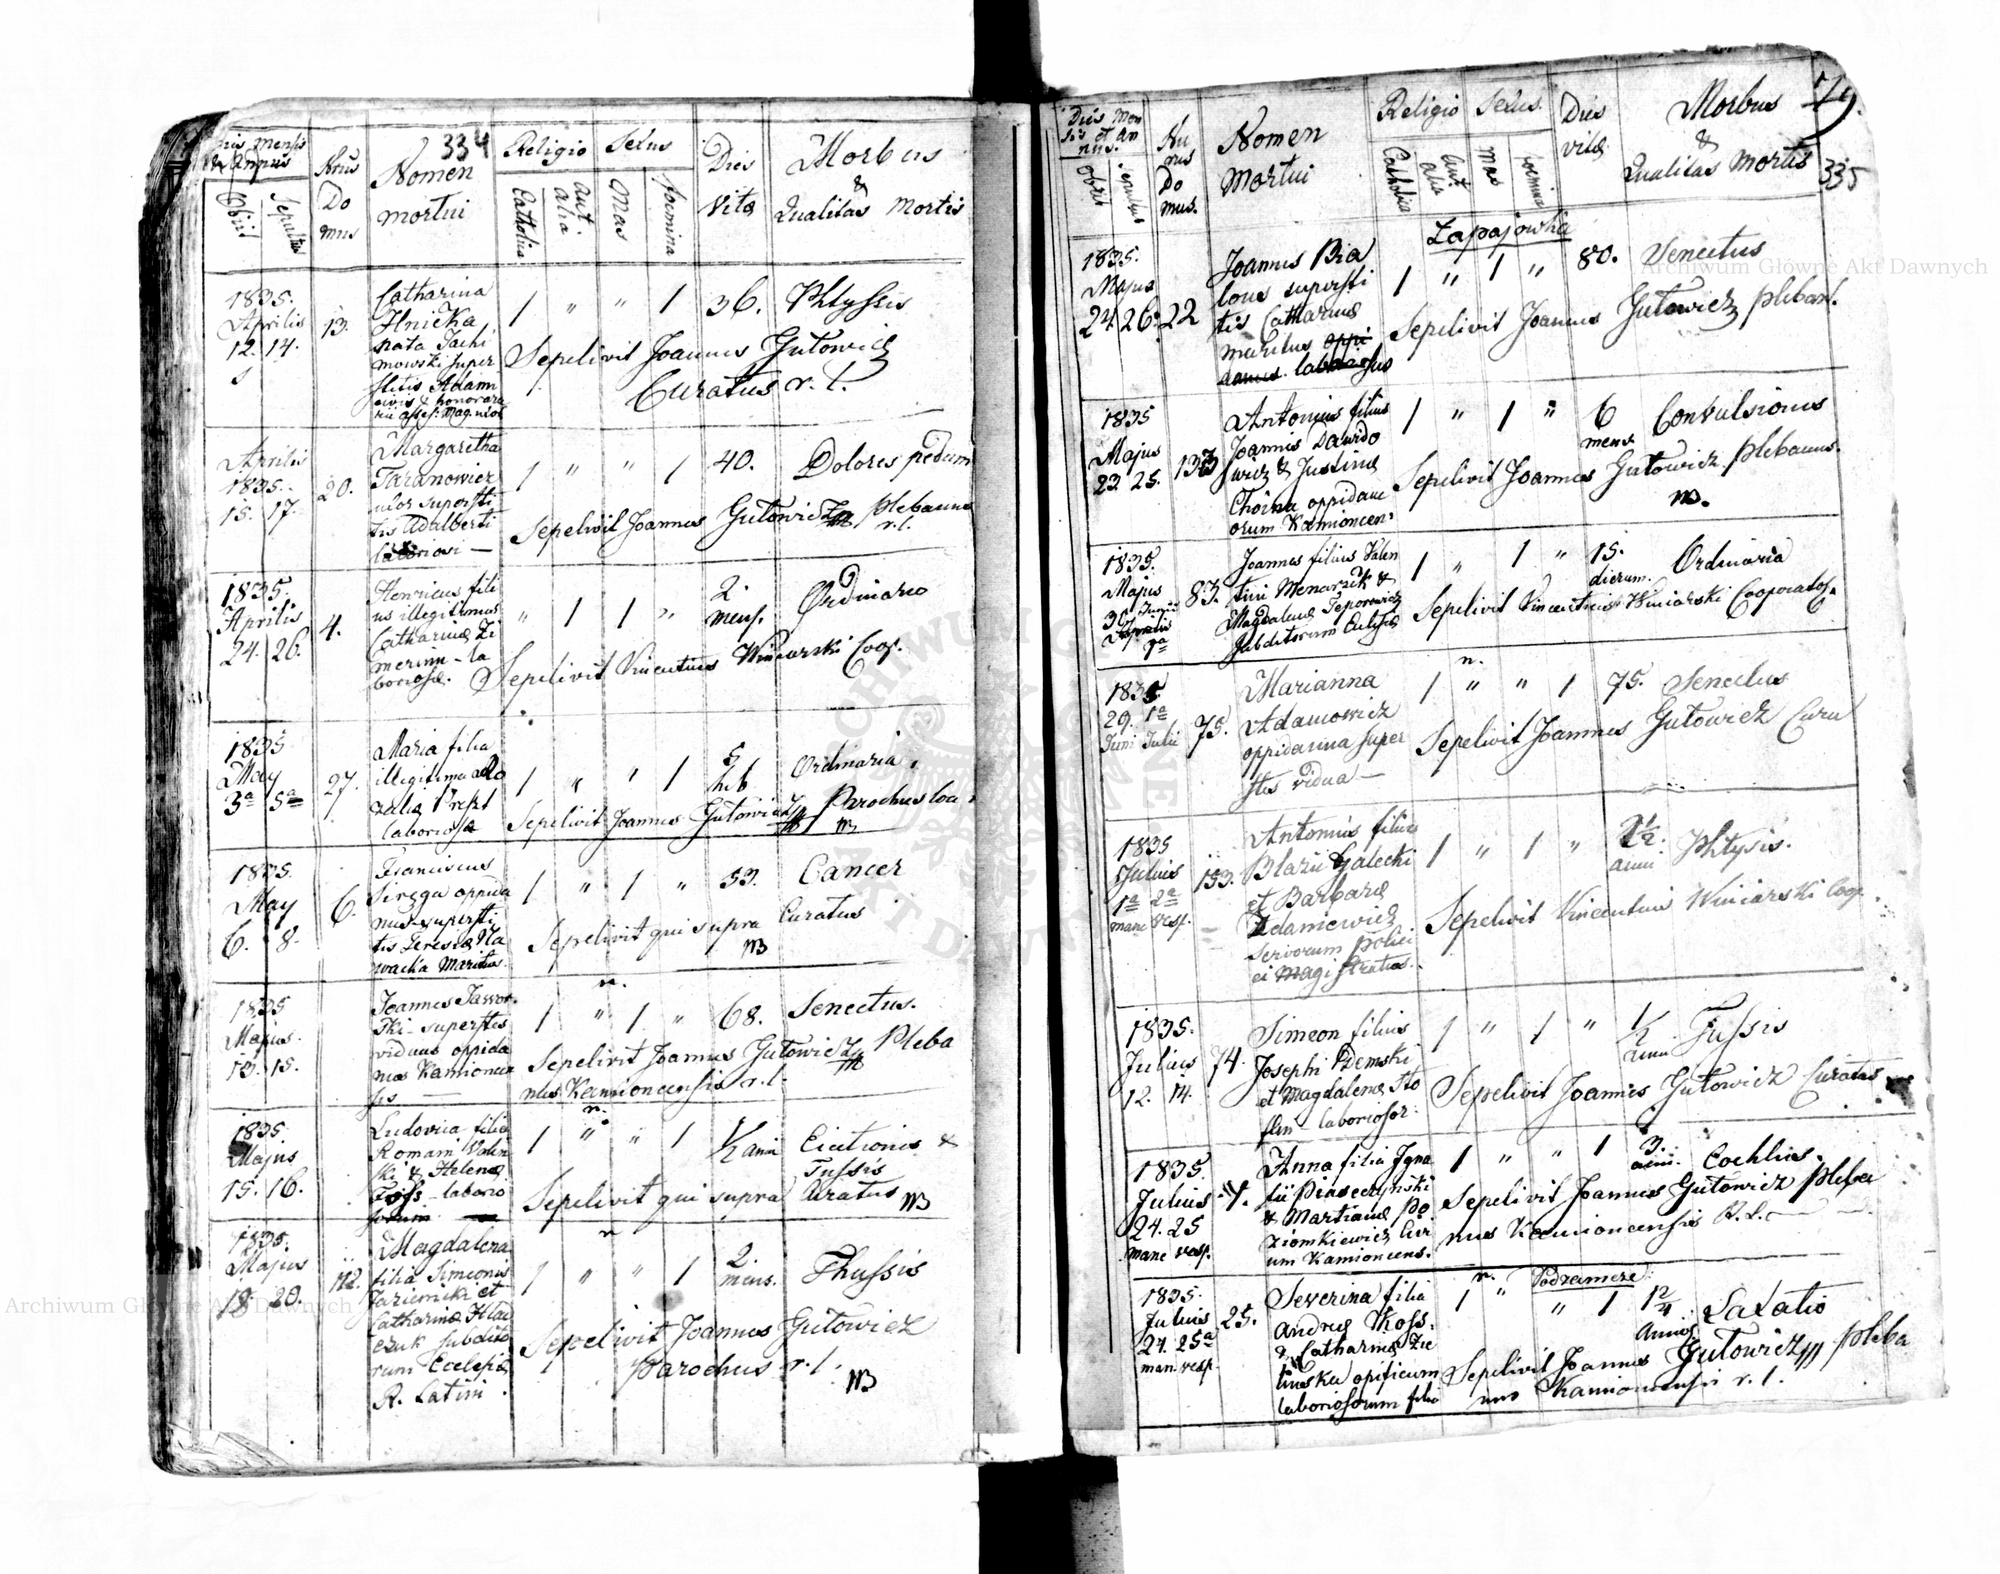 334
Dies Mensis
et Annus
Nrus
Do
mus
Nomen
mortui
Religio
Sexus
Dies
Vitæ
Morbus
&
Qualitas Mortis
Obiit
Sepultus
Catholica
Aut.
alia
Mas
foemina
1835.
Aprilis
12. 14.
13.
Catharina
nata
mowski super
stitis Adami
civis & honora
1 " " 1 36. Phtyssis
Sepelivit Joannes Gutowicz
Curatus r. l.
Aprilis
1835.
15. 17.
20.
Margaretha
Taranowicz
uxor supersti
tis Adalberti
laboriosi —
1 " " 1 40. Dolores pedum
Sepelivit Joannes Gutowicz Plebanus
r. l.
1835.
Aprilis
24. 26.
4.
Henricus fili
us illegitimus
Catharinæ Zi
la
boriosæ.
" 1 1 " 2. mens. Ordinario
Sepelivit Vincentius Winiarski Coop.
1835
May
3a 5a
27.
Maria filia
illegitima
laboriosæ
1 " " 1 5 heb Ordinaria
Sepelivit Joannes Gutowicz Parochus
1835.
May
6. 8.
6.
Franciscus
oppida
nus supersti
tis Teresiæ
Maritus
1 " 1 " 53. Cancer
Sepelivit qui supra Curatus
1835
Majus.
13. 15.
Joannes Jawor
ski superstes
viduus oppida
nus Kamioncen
sis
1 " 1 " 68. Senectus.
Sepelivit Joannes Gutowicz Pleba
nus Kamioncensis r. l.
1835.
Majus
15. 16.
Ludovica filia
Romani
ki & Helenæ
laborio
sorum
1 " " 1 ½ anni &
Tussis
Sepelivit qui supra Curatus
1835.
Majus
18. 20.
112.
Magdalena
filia Simeonis
et
Catharinæ
czuk subdito
rum Ecclesiæ
R. Latini
1 " " 1 2 mens. Thussis
Sepelivit Joannes Gutowicz
Parochus r. l.
79.
335
Dies Men
sis et An
nus.
Nu
rus
Do
mus.
Nomen
Mortui
Religio
Sexus
Dies
vitæ
Morbus
&
Qualitas Mortis
Obiit
Catholica
Aut.
alia
Mas
foemina
Łapajowka
1835.
Majus
24. 26.
22
Joannes Bia
lous supersti
tis Catharinæ
maritus
1 " 1 " 80. Senectus
Sepelivit Joannes Gutowicz pleban.
1835
Majus
23. 25.
Antonius filius
Joannis Dawido
wicz & Justinæ
oppidan
orum Kamioncen.
1 " 1 " 6 mens. Convulsionis
Sepelivit Joannes Gutowicz Plebanus.
1835.
Majus
83.
Joannes filius Valen
tini &
Magdalenæ
subditorum Eccl
1 " 1 " 15. dierum. Ordinaria
Sepelivit Vincentius Winiarski Cooperator.
1835
29. 1a
Juni Julii
75.
Marianna
Adamowicz
oppidanna super
stes vidua —
1 " " 1 75. Senectus
Sepelivit Joannes Gutowicz Cura
1835
Julius
1a 2a
mane vesp.
153.
Antonius filius
Blazii Galecki
et Barbaræ
Adamewicz
servorum polici
ei magistratus.
1 " 1 " anni Phtysis.
Sepelivit Vincentius Winiarski Coop.
1835.
Julius
12. 14.
74.
Simeon filius
Josephi
et Magdalenæ
laboriosor:
1 " 1 " ½ anni Tussis
Sepelivit Joannes Gutowicz Curatus
1835.
Julius
24. 25
mane vesp.
Anna filia Igna
tii Piaseczynski
& Martianæ Po
ziomkiewicz Civi
um Kamioncens.
1 " " 1 3. anni. Cochlius.
Sepelivit Joannes Gutowicz Pleba
nus Kamioncensis R. L.
1835.
Julius
24. 25a
man. vesp.
25.
Severina filia
Andreæ Koss.
& Catharinæ Zie
linska opificum
laboriosorum filia
Podzamcze
1 " " 1 Annos Laxatio
Sepelivit Joannes Gutowicz Pleba
nus Kamioncensis r. l.
Archiwum Główne Akt Dawnych
Archiwum Główne Akt Dawnych
ARCHIWUM GŁÓWNE AKT DAWNYCH